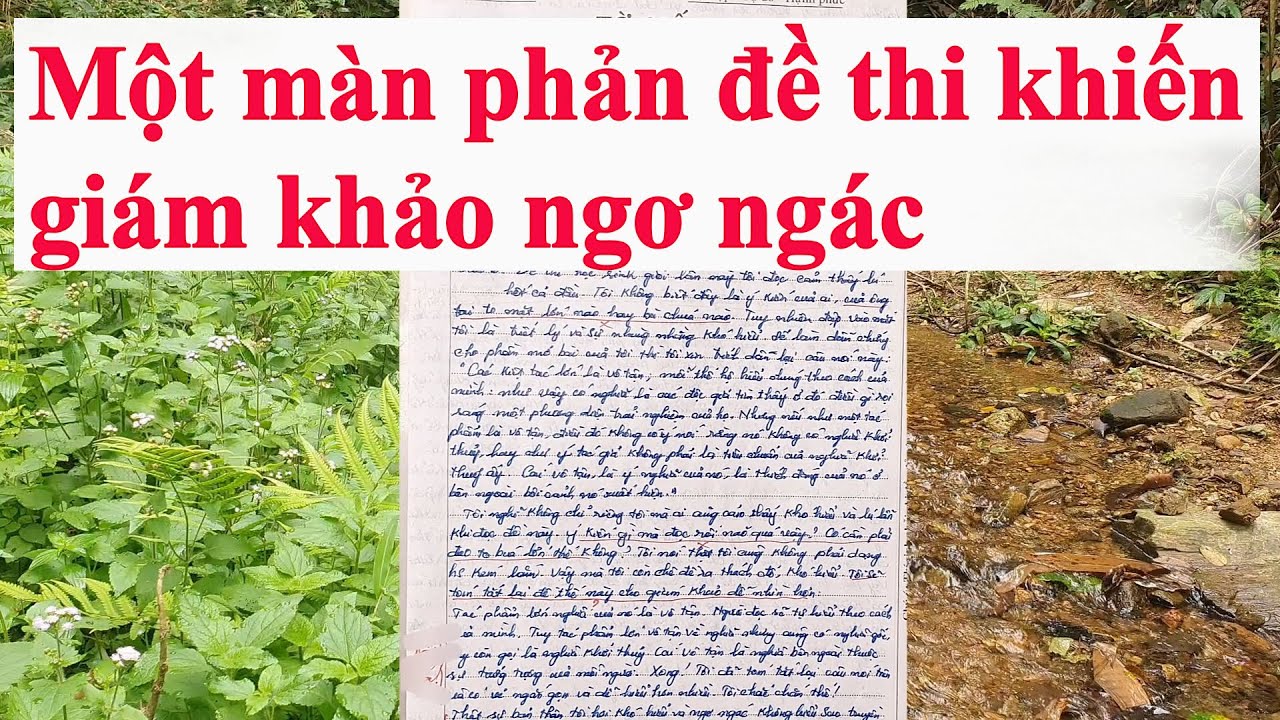 Một màn phản đề thi khiến
giám khảo ngơ ngác
Hạnh phúc
Đề thi học sinh giỏi Văn này tôi đọc cảm thấy lú
hết cả đầu. Tôi không biết đây là ý kiến của ai, của ông
tai to mặt lớn nào hay bà chúa nào. Tuy nhiên đập vào mắt
tôi là triết lý và sự nhung nhăng khó hiểu. Để làm dẫn chứng
cho phần mở bài của tôi thì tôi xin trích dẫn lại câu nói này:
"Các kiệt tác lớn là vô tận, mỗi thế hệ hiểu chúng theo cách của
mình: như vậy có nghĩa là các độc giả tìm thấy ở đó điều gì rọi
sáng một phương diện trải nghiệm của họ. Nhưng nếu như một tác
phẩm là vô tận, điều đó không có ý nói rằng nó không có nghĩa khởi
thuỷ, hay như ý tác giả không phải là tiêu chuẩn của nghĩa khởi
thuỷ ấy. Cái vô tận, là ý nghĩa của nó, là thích đáng của nó ở
bên ngoài bối cảnh nó xuất hiện."
Tôi nghĩ không chỉ riêng tôi mà ai cũng cảm thấy khó hiểu và lú lẫn
khi đọc đề này. Ý kiến gì mà đọc rối não quá vậy? Có cần phải
đao to búa lớn thế không? Tôi nói thật tôi cũng không phải dạng
hs kém lắm. Vậy mà tôi còn chê đề ra thách đố, khó hiểu. Tôi sẽ
tóm tắt lại đề thi này cho giám khảo dễ nhìn hơn.
Tác phẩm lớn nghĩa của nó là vô tận. Người đọc sẽ tự hiểu theo cách
của mình. Tuy tác phẩm lớn vô tận về nghĩa nhưng cũng có nghĩa gốc
hay còn gọi là nghĩa khởi thuỷ. Cái vô tận là nghĩa bên ngoài thuộc
sự tưởng tượng của mỗi người. Xong! Tôi đã tóm tắt lại câu nói trên
và có vẻ ngắn gọn và dễ hiểu hơn nhiều. Tôi chắc chắn thế!
Thật sự bản thân tôi hơi khó hiểu và ngơ ngác không hiểu sao